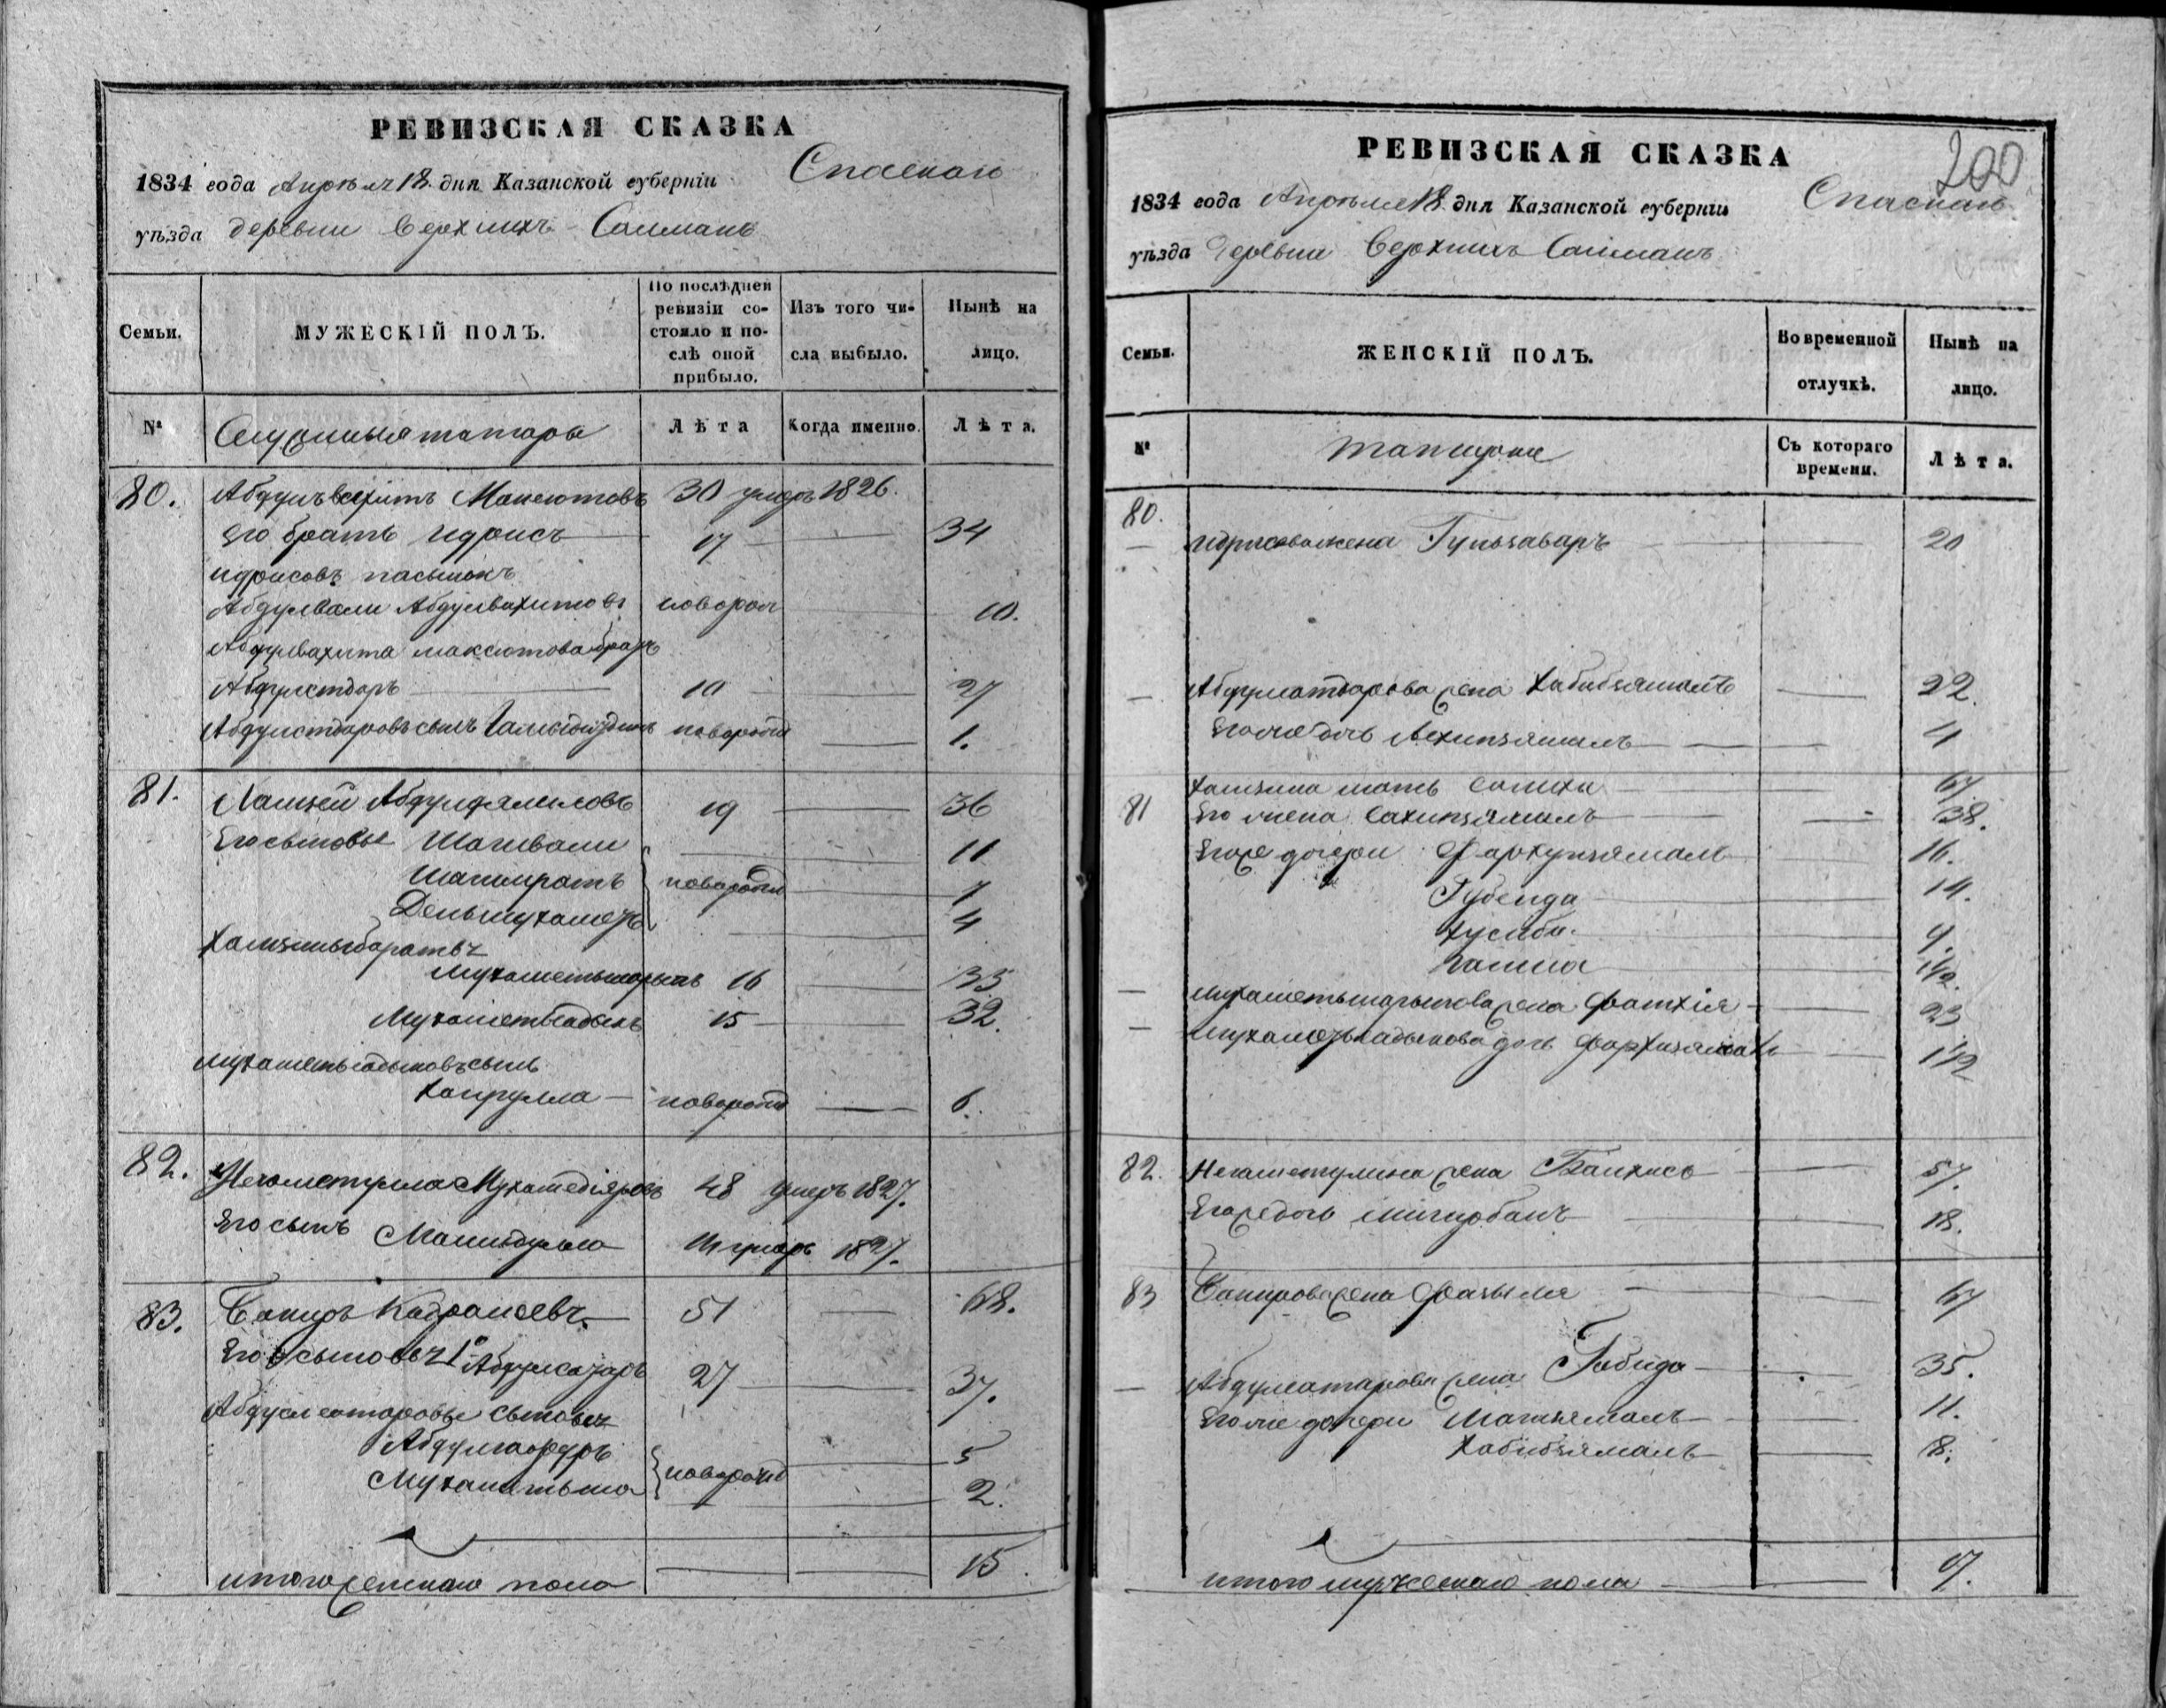 РЕВИЗСКАЯ СКАЗКА
1834 года Апреля 18. дня Казанской губерніи Спаскаго
уѣзда деревни Верхнихъ Салманъ
Семьи. МУЖЕСКІЙ ПОЛЪ. По послѣдней ревизіи состояло и послѣ оной прибыло. Изъ того числа выбыло. Нынѣ на лицо.
№ Служилыя татары Лѣта Когда именно. Лѣта.
80. Абдулъвахитъ Максютовъ 30 умеръ 1826.
Его братъ Идрисъ 17 34
Идрисовъ пасынокъ
Абдулвали Абдулвахитовъ новорож 10.
Абдулвахита Максютова братъ
Абдулстаръ 10 27
Абдулстаровъ сынъ новорожд 1.
81. Хамзей Абдулфялиловъ 19 36
Его сыновья Шагивали 11
Шагимратъ новорожд 7
Деньмухаметъ 4
Хамзины братья
Мухаметьшарыпъ 16 33
Мухаметьсадыкъ 15 32.
Мухаметьсадыковъ сынъ
Хайрулла новорожд 6.
82. Негометулла Мухамедіяровъ 48 умеръ 1827.
Его сынъ умеръ 1827.
83. Бакиръ Кадраковъ 51 68.
Его сыновья 1й Абдулсатаръ 27 37.
Абдулсатаровы сыновья
Абдулгафуръ 5
Мухаметьша новорожд 2.
итого женскаго пола 15.
РЕВИЗСКАЯ СКАЗКА 200
1834 года Апреля 18. дня Казанской губерніи Спаскаго
уѣзда Деревни Верхнихъ Салманъ
Семьи. ЖЕНСКІЙ ПОЛЪ. Во временной отлучкѣ. Нынѣ на лицо.
№ татарки Съ котораго времени. Лѣта.
80.
Идрисова жена Гульзаваръ 20
Абдулсатарова жена Хабибзямалъ 22.
Его же дочь 4
Хамзина мать Салиха 67.
81 Его жена Сахипзямалъ 38.
Его же дочери Фархунзямалъ 16.
Губейда 14.
Хусниба. 9.
1/2.
Мухаметьшарыпова жена Фатхія 23
Мухаметьсадыкова дочь 1 1/2
82. Негаметулина жена Банхисъ 57.
Его же дочь 18.
83 Бакирова жена Фазыля 67
Абдулсатарова жена Габида 35.
Его же дочери Шагизямалъ 11.
Хабибзямалъ 8.
итого мужескаго пола 17.